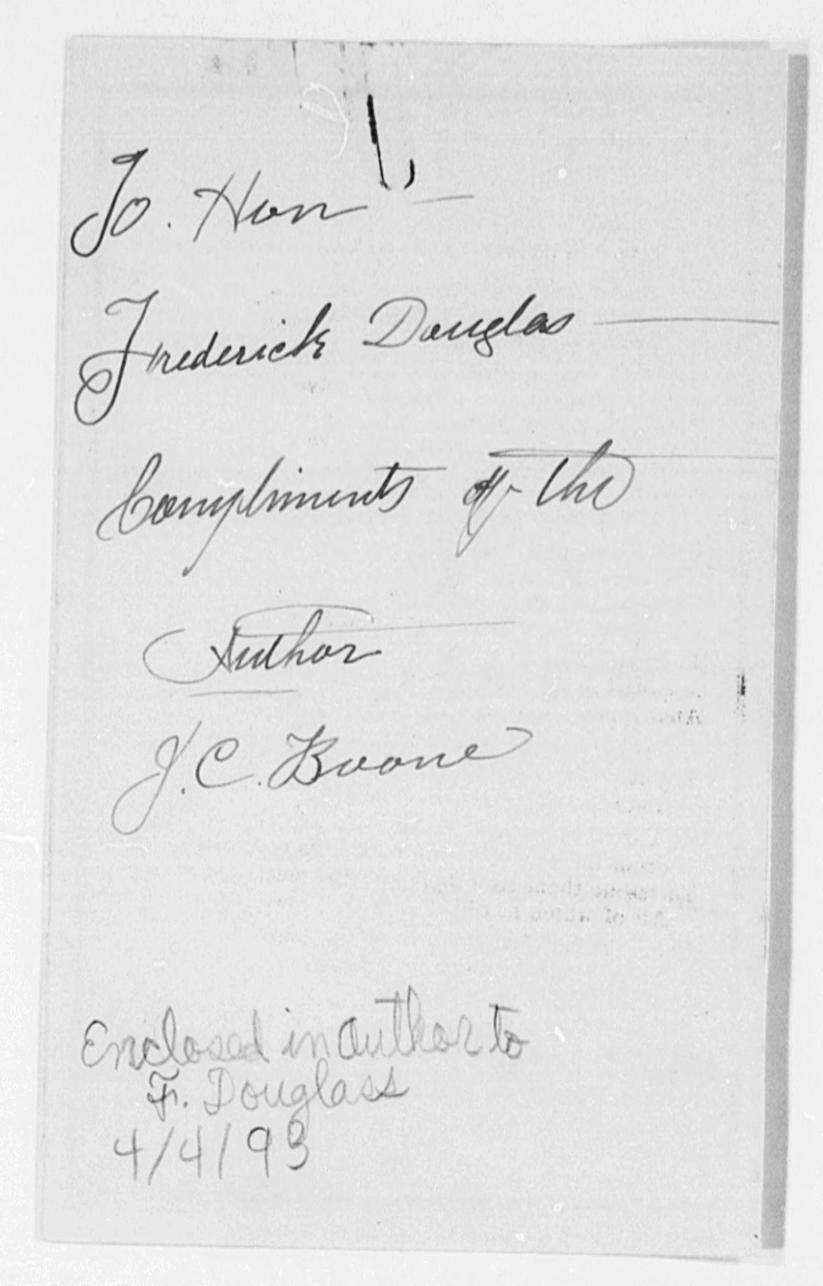 To. Hon —
Frederick Douglas —
Compliments of the
Author
J. C. Boone
Enclosed in author to
F. Douglass
4/4/93